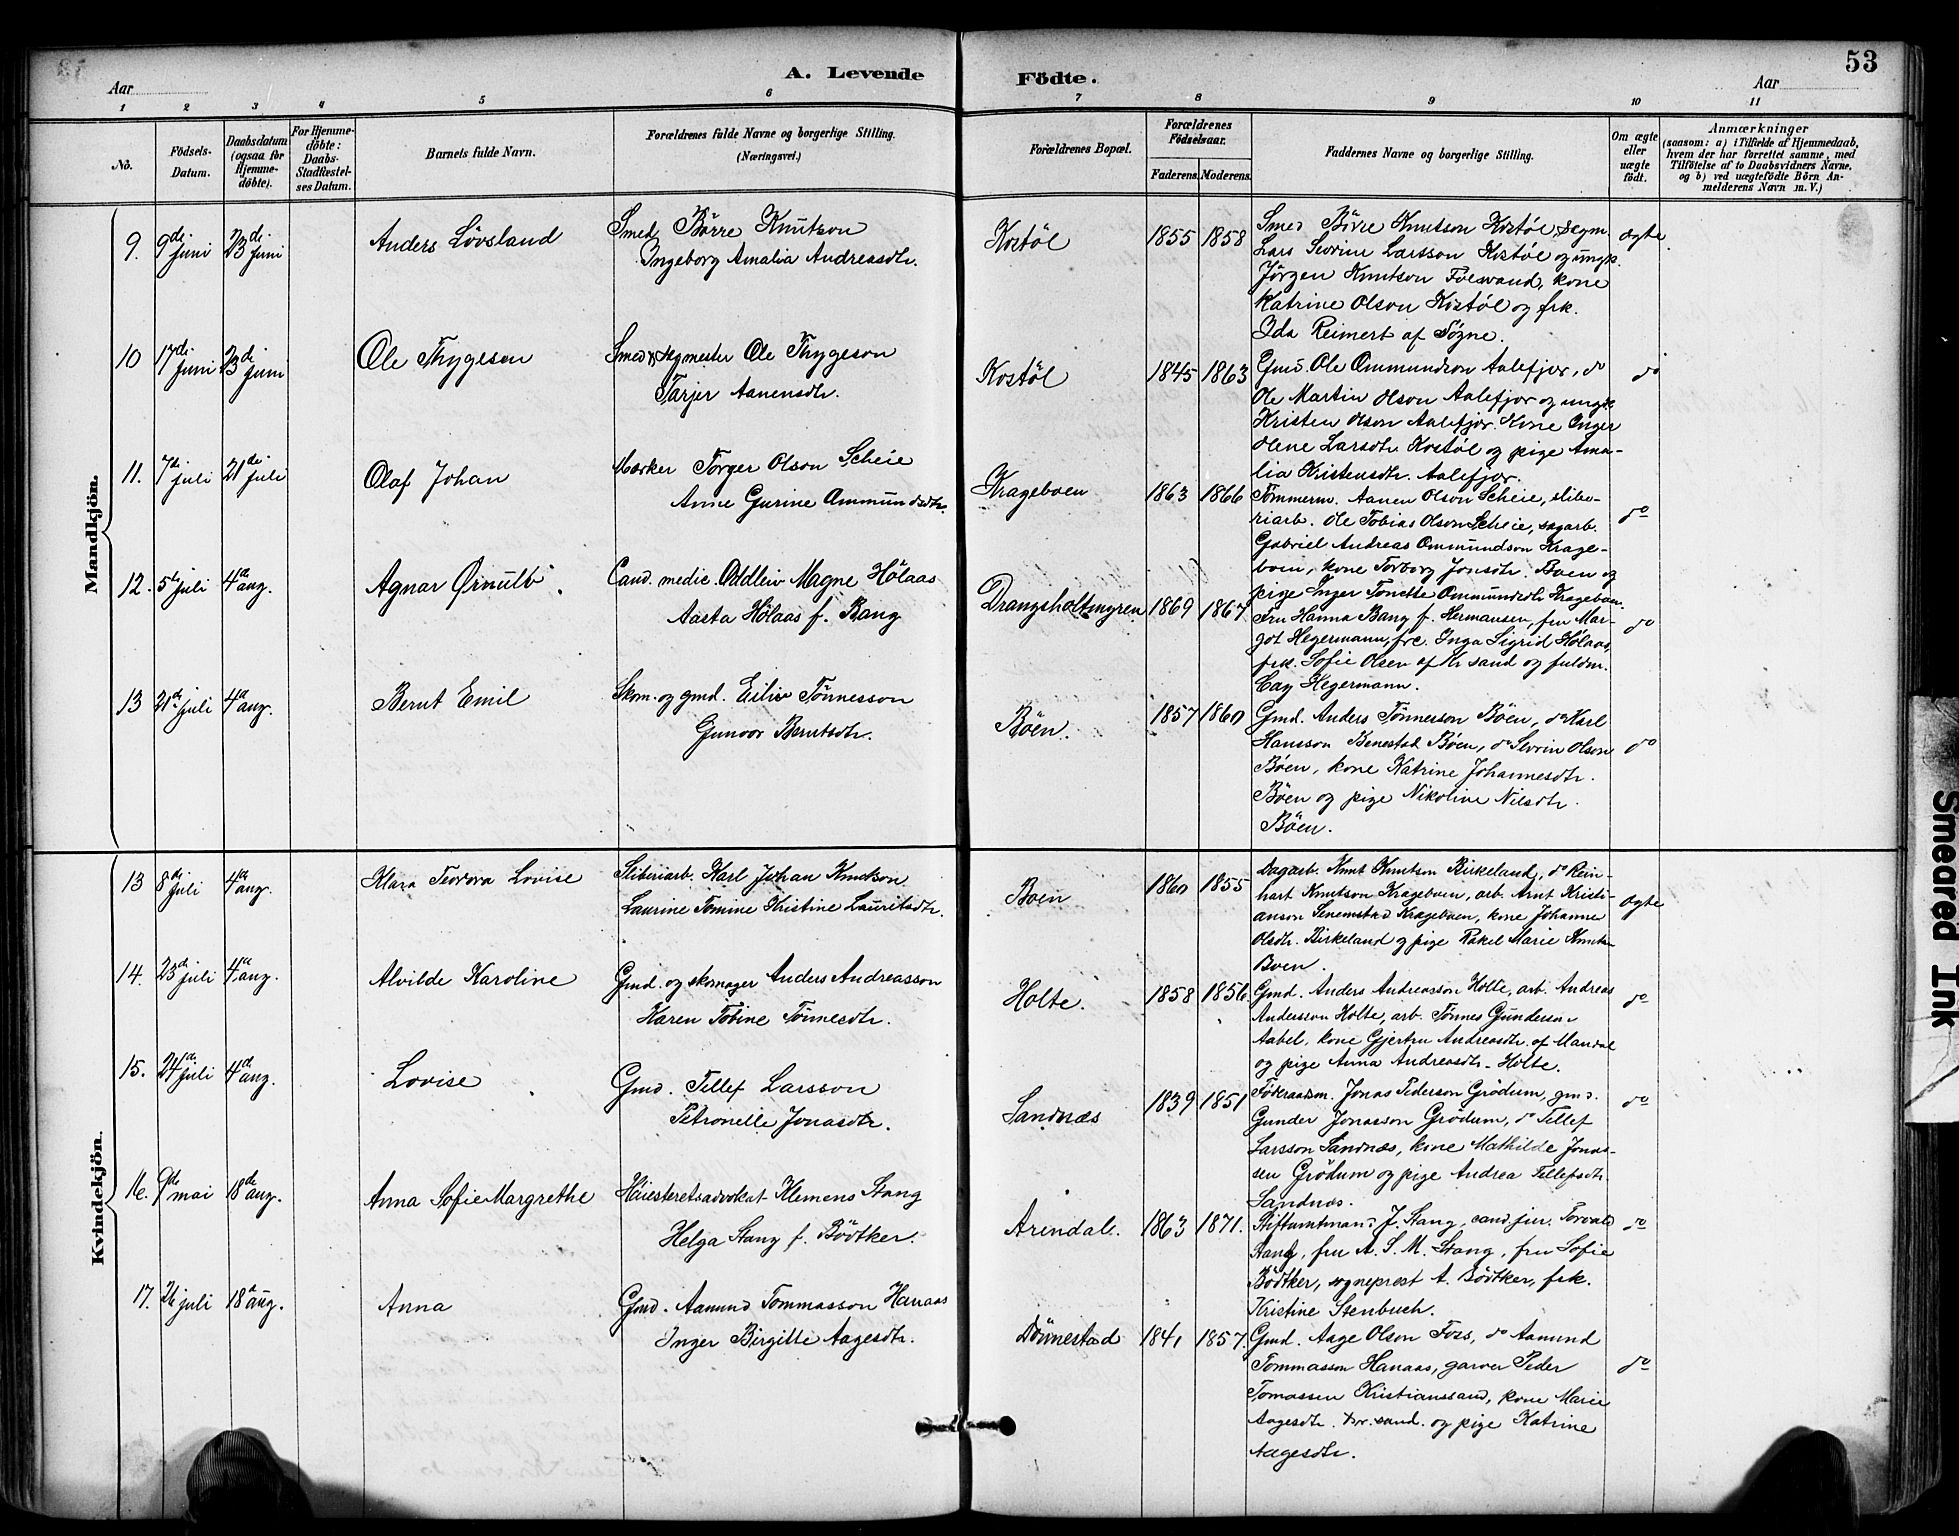 A. Levende Födte.
53
Aar
Aar
1 2 3 4 5 6 7 8 9 10 11
No.
Födsels-Datum.
Daabsdatum (ogsaa for Hjemme-döbte).
For Hjemme-döbte: Daabs-Stadfæstel-ses Datum.
Barnets fulde Navn.
Forældrenes fulde Navne og borgerlige Stilling.
(Næringsvei.)
Forældrenes Bopæl.
Forældrenes Födselsaar.
Faderens. Moderens.
Faddernes Navne og borgerlige Stilling.
Om ægte eller uægte födt.
Anmærkninger
(saasom: a) i Tilfælde af Hjemmedaab,
hvem der har forrettet samme, med
Tilföielse af to Daabsvidners Navne,
og b) ved uægtefödte Börn An-
melderens Navn m. V.)
Mandkjön.
9. 9de juni 23de juni Anders Lövsland
Smed Börre Knutson
Ingeborg Amalia Andreasdtr.
Kostöl 1855 1858
Smed Börre Knutson Kostöl, segm.
Lars Severin Larsson Kostöl og ungk.
Jörgen Knutson Foss, kone
Katrine Olson Kostöl og frk.
Ida Reimert af Søgne.
ægte
10 17de juni 23de juni Ole Thygeson
Smed & segmester Ole Thygeson
Tarjer Aanensdtr.
Kostöl 1845 1863
Gmd. Ole Ommundson Aalefjær, do
Ole Martin Olson Aalefjær og ungk.
Kristen Olson Aalefjær. Kone Inger
Olene Larsdtr. Kostöl og pige Ama-
lia Kristensdtr. Aalefjær.
do
11. 7de juli 21de juli Olaf Johan
Mærker Torger Olson Scheie
Anne Gurine Ommundsdtr.
Krageboen 1863 1866
Tömmerm. Aanen Olson Scheie, slibe-
riarb. Ole Tobias Olson Scheie, sagarb.
Gabriel Andreas Ommundson Krage-
boen, kone Torborg Jonsdtr. Boen og
pige Inger Tonette Ommundsdtr Krageboen.
do
12. 5te juli 4de aug. Agnar Ørnulv
Cand. medic. Oddleiv Magne Hölaas
Aasta Hölaas f. Bang
Drangsholtmyren 1869 1867
Fru Hanna Bang f. Hermansen, fru Mar-
got Hegermann, frk. Inga Sigrid Hölaas,
frk. Sofie Olsen af Kr.sand og fuldm.
Cay Hegermann.
do
13 21de juli 4de aug. Bernt Emil
Skom. og gmd. Eiliv Tönnesson
Gunvor Berntsdtr.
Böen. 1857 1860
Gmd. Anders Tönneson Böen, do Karl
Hansson Benestad Böen, do Severin Olson
Böen, kone Katrine Johannesdtr.
Böen og pige Nikoline Nilsdtr.
Böen.
do
Kvindekjön.
13 8de juli 4de aug. Klara Teodora Lovise
Sliberiarb. Karl Johan Knudson
Laurine Tomine Kristine Lauritsdtr.
Boen 1860 1855
Dagarb. Knut Knutson Birkeland, do Rein-
hart Knutson Krageboen, arb. Arnt Kristi-
anson Senemstad Krageboen, kone Johanne
Olsdtr. Birkeland og pige Rakel Marie Knuts-
Boen.
ægte
14. 23de juli 4de aug. Alvilde Karoline
Gmd. og skomager Anders Andreasson
Karen Tobine Tönnesdtr.
Holte. 1858 1856.
Gmd. Anders Andreasson Holte, arb. Andreas
Andersson Holte, arb. Tönnes Gunderson
Aabel, kone Gjertru Andreasdtr. af Mandal
og pige Anna Andreasdtr. Holte.
do
15. 24de juli 4de aug. Lovise
Gmd. Tellef Larsson
Petronelle Jonasdtr.
Sandnæs 1839 1851
Jonas Pederson Grödum, gmd.
Gunder Jonasson Grödum, do Tellef
Larsson Sandnæs, kone Mathilde Jonas-
sen Grödum og pige Andrea Tellefsdtr.
Sandnæs.
do
16. 9de mai 18de aug. Anna Sofie Margrethe
Höiesteretsadvokat Klemens Stang
Helga Stang f. Bödtker.
Arendal. 1863 1871.
Stiftamtmand J. Stang, cand. jur. Torvald
Stang, fru A. S. M. Stang, fru Sofie
Bödtker, sogneprest A. Bödtker, frk.
Kristine Stenbuch.
do
17. 26 juli 18de aug. Anna
Gmd. Aamund Tommasson Hanaas
Inger Birgitte Aagesdtr.
Dönnestad 1841 1857.
Gmd. Aage Olson Foss, do Aamund
Tommasson Hanaas, garver Peder
Tomassen Kristianssand, kone Marie
Aagesdtr. Kr.sand. og pige Katrine
Aagesdtr.
do
Smeared Ink